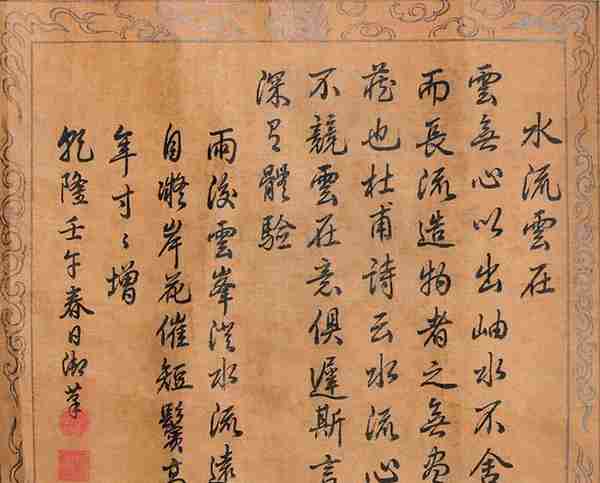 水流雲在
雲無心以出岫水不舍
而長流造物者之無盡
藏也杜甫詩云水流心
不競雲在意俱遲斯言
深有體驗
雨後雲峯澄水流遠
自凝岸花催短鬢高
年寸〻增
乾隆壬午春日御筆